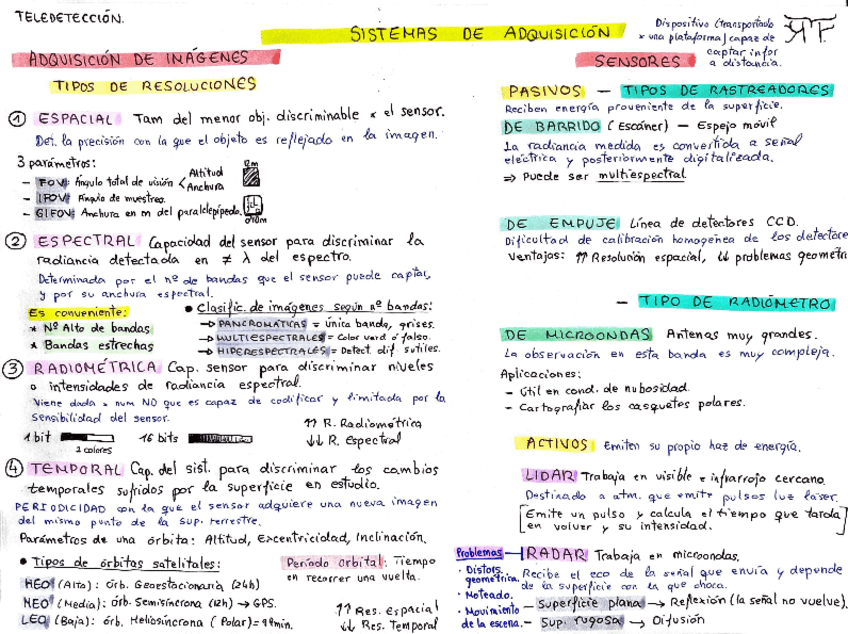 TELEDETECCIÓN.
SISTEMAS DE ADQUISICIÓN
ADQUISICIÓN DE IMÁGENES
TIPOS DE RESOLUCIONES
① ESPACIAL Tam del menor obj. discriminable x el sensor.
Det. la precisión con la que el objeto es reflejado en la imagen.
3 parámetros:
- FOV: Ángulo total de visión < Altitud
Anchura
12m
- IFOV: Ángulo de muestreo.
- GIFOV: Anchura en m del paralelepípedo.
② ESPECTRAL Capacidad del sensor para discriminar la
radiancia detectada en ≠ λ del espectro.
Determinada por el nº de bandas que el sensor puede captar,
y por su anchura espectral.
Es conveniente:
* Nº Alto de bandas
* Bandas estrechas
• Clasific. de imágenes según nº bandas:
→ PANCROMÁTICAS = única banda, grises.
→ MULTIESPECTRALES = Color verd o falso.
→ HIPERESPECTRALES = Detect. dif sutiles.
③ RADIOMÉTRICA Cap. sensor para discriminar niveles
o intensidades de radiancia espectral.
Viene dada x num NO que es capaz de codificar y limitada por la
sensibilidad del sensor.
1 bit
2 colores
16 bits
↑↑ R. Radiométrica
↓↓ R. Espectral
④ TEMPORAL Cap. del sist. para discriminar los cambios
temporales sufridos por la superficie en estudio.
PERIODICIDAD con la que el sensor adquiere una nueva imagen
del mismo punto de la sup. terrestre.
Parámetros de una órbita: Altitud, Excentricidad, Inclinación.
• Tipos de órbitas satelitales:
HEO (Alta): Órb. Geoestacionaria (24h)
MEO (Media): Órb. Semisíncrona (12h) → GPS.
LEO (Baja): Órb. Heliosíncrona (Polar) = 99min.
Periodo orbital: Tiempo
en recorrer una vuelta.
↑↑ Res. Espacial
↓↓ Res. Temporal
Dispositivo (transportado
x una plataforma) capaz de
captar infor
a distancia.
SENSORES
PASIVOS — TIPOS DE RASTREADORES
Reciben energía proveniente de la superficie.
DE BARRIDO (Escáner) — Espejo móvil
La radiancia medida es convertida a señal
eléctrica y posteriormente digitalizada.
⇒ Puede ser multiespectral
DE EMPUJE Línea de detectores CCD.
Dificultad de calibración homogénea de los detectore
Ventajas: ↑↑ Resolución espacial, ↓↓ problemas geométri
— TIPO DE RADIÓMETRO
DE MICROONDAS Antenas muy grandes.
La observación en esta banda es muy compleja.
Aplicaciones:
- Útil en cond. de nubosidad.
- Cartografiar los casquetes polares.
ACTIVOS Emiten su propio haz de energía.
LIDAR Trabaja en visible e infrarrojo cercano.
Destinado a atm. que emite pulsos luz láser.
[Emite un pulso y calcula el tiempo que tarda]
en volver y su intensidad.
Problemas — RADAR Trabaja en microondas.
· Distors.
geométrica.
· Moteado.
· Movimiento
de la escena.
Recibe el eco de la señal que envía y depende
de la superficie con la que choca.
— Superficie plana → Reflexión (la señal no vuelve).
— Sup. rugosa → Difusión